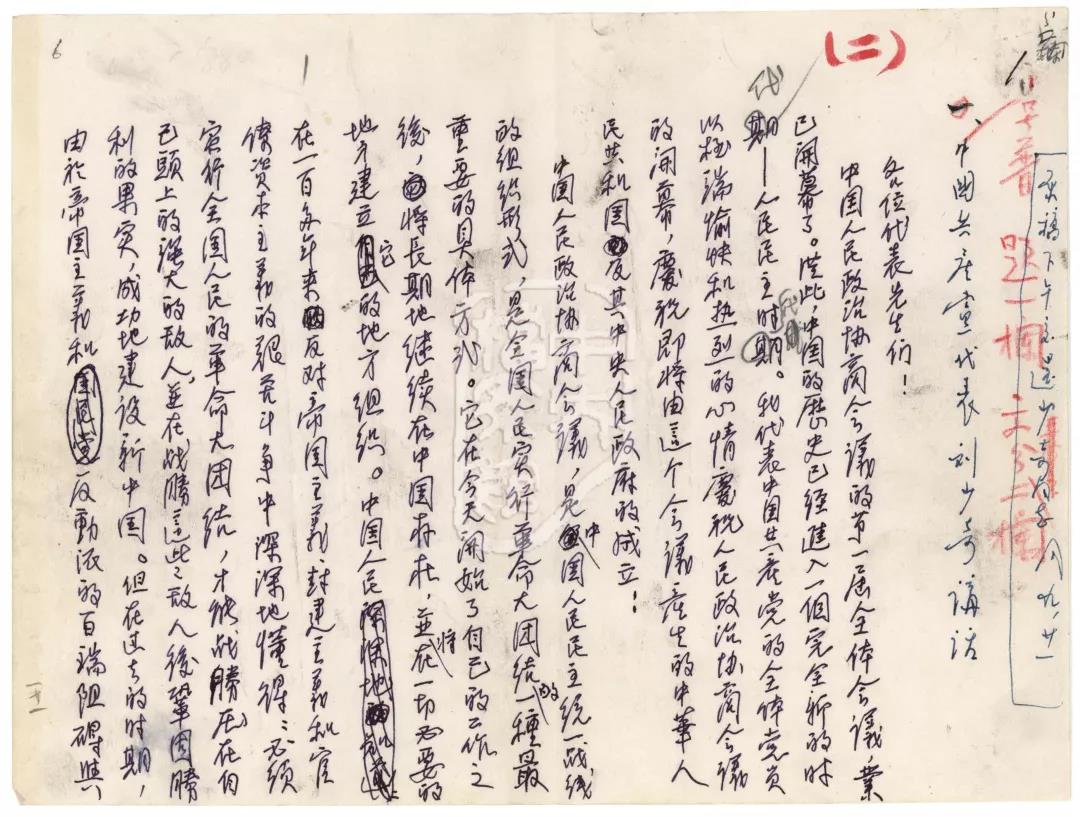 (二)
一、中國共產黨代表刘少奇講话
各位代表先生们！
中国人民政治协商会議的第一届全体会議，業
已開幕了。從此，中国的歷史已经進入一個完全新的时
代——人民民主时代。我代表中国共產党的全体党員
以極端愉快和热烈的心情慶祝人民政治协商会議
的開幕，慶祝即将由這个会議產生的中華人
民共和国及其中央人民政府的成立！
中国人民政治协商会議，是中国人民民主统一战线
的组织形式，是全国人民实行革命大团结的一種最
重要的具体方式。它在今天開始了自己的工作之
後，将長期地继续在中国存在，並将在一切必要的
地方建立它的地方组织。中国人民
在一百多年来反对帝国主义封建主義和官
僚資本主義的艰苦斗争中深深地懂得：必須
实行全国人民的革命大团结，才能战勝压在自
己頭上的强大的敌人，並在战勝這些敌人後鞏固勝
利的果实，成功地建设新中国。但在过去的时期，
由於帝国主義和国民党反動派的百端阻碍與
6